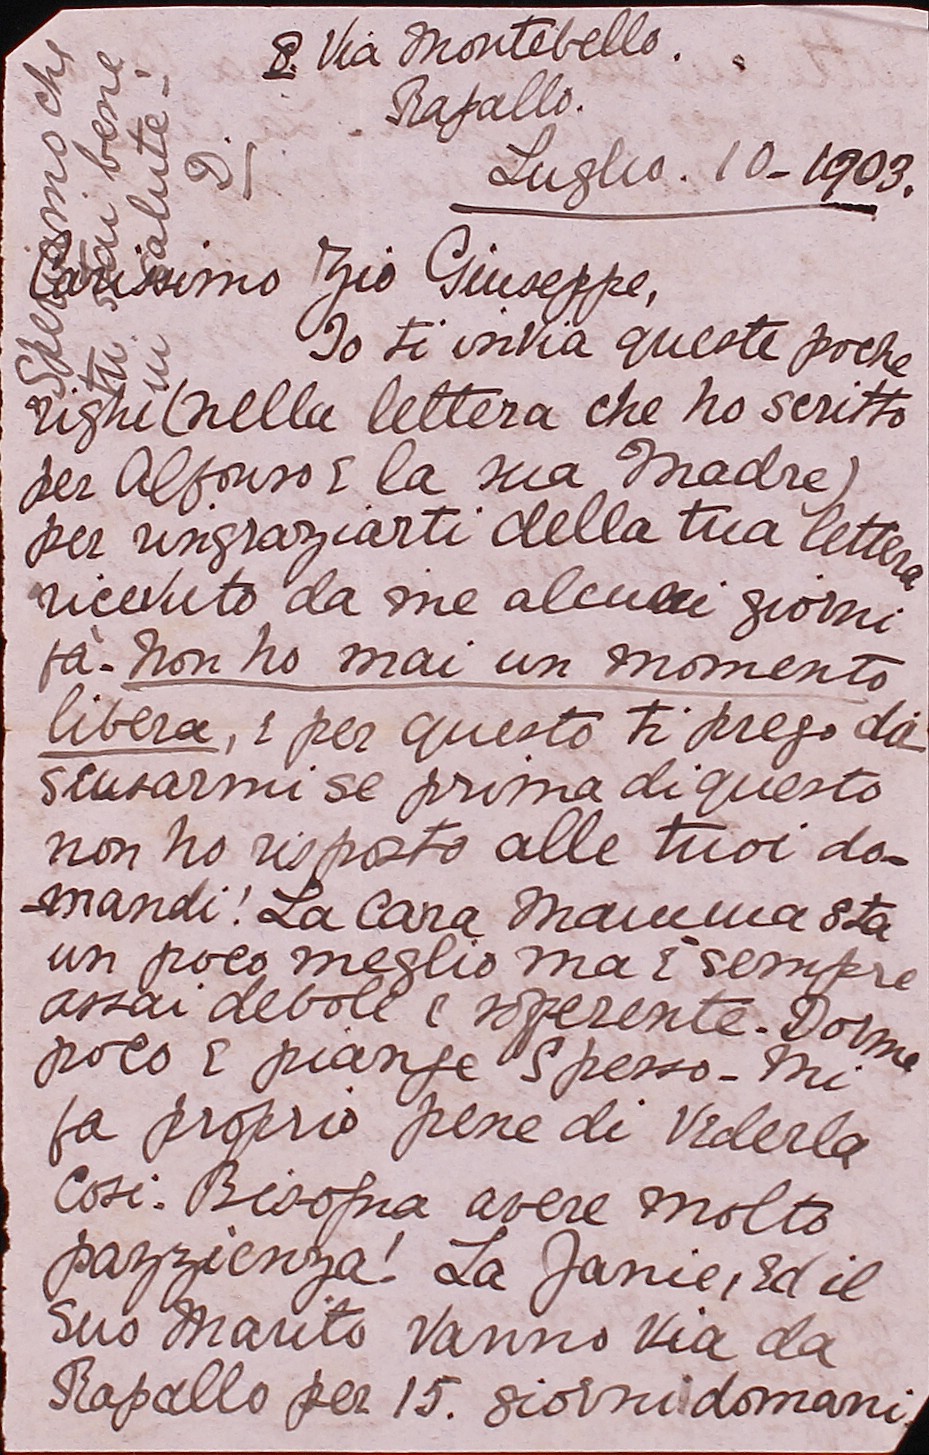 8. Via Montebello.
Rapallo.
Luglio. 10 - 1903.
Carissimo Zio Giuseppe,
Io ti invia queste poche
righe (nella lettera che ho scritto
per Alfonso E la sua Madre)
per ringraziarti della tua lettera
ricevuto da me alcuni giorni
fà - Non ho mai un momento
libera, E per questo ti prego di
scusarmi se prima di questo
non ho risposto alle tuoi do-
-mandi! La Cara Mamma sta
un poco meglio ma È sempre
assai debole e sofferente - Dorme
poco E piange Spesso - Mi
fa proprio pene di Vederla
Cosi. Bisogna avere molto
pazzienza! La Janie, Ed il
Suo Marito Vanno Via da
Rapallo per 15. giorni domani.
Speriamo che
tu stai bene
in salute -
D.